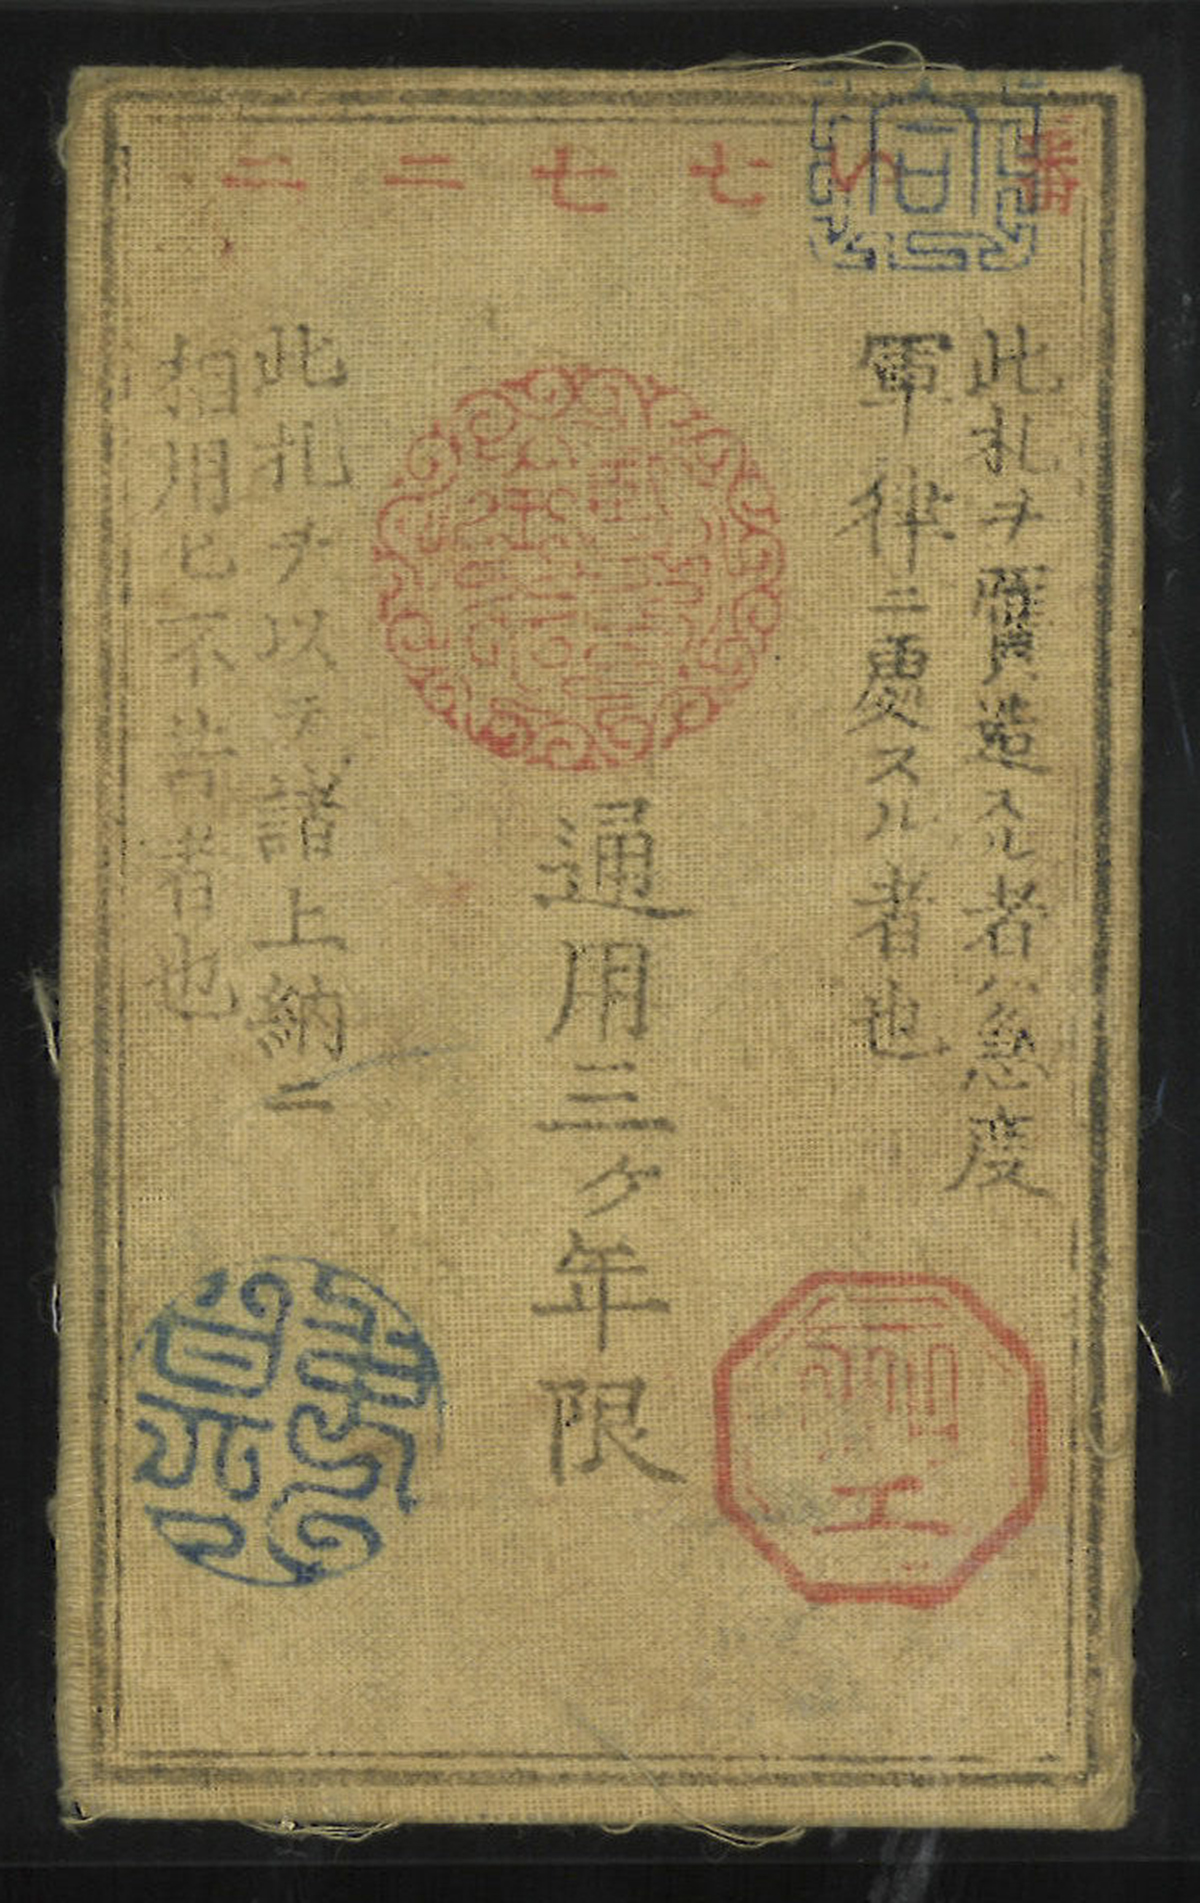 二二七七
番
此札ヲ贋造スル者ハ急度
軍律ニ處スル者也
通用三ケ年限
此札ヲ以テ諸上納ニ
相用ヒ不苦者也